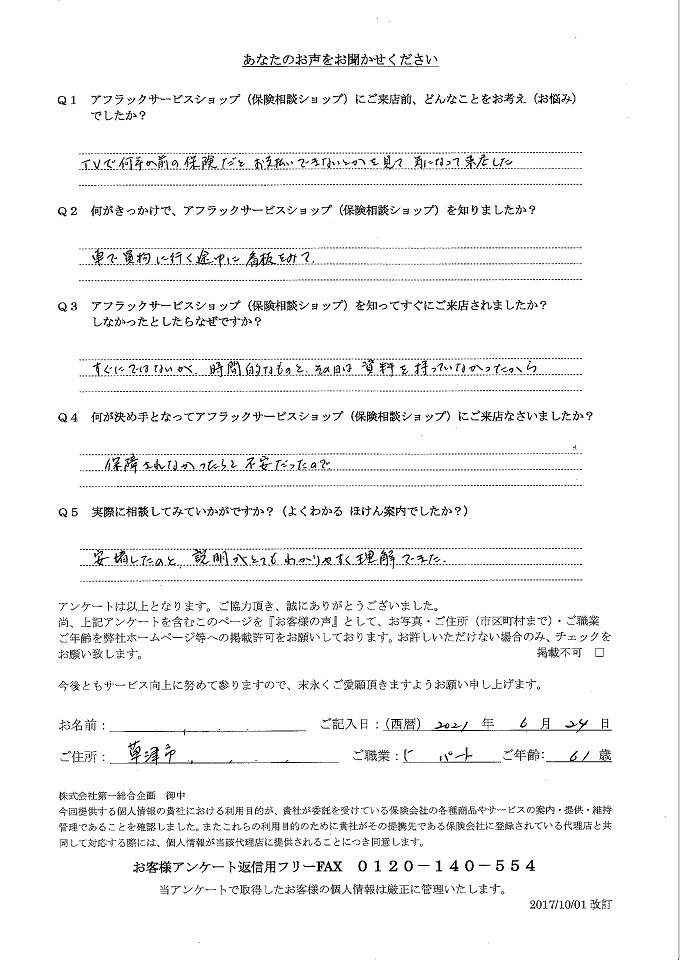 あなたのお声をお聞かせください
Q1 アフラックサービスショップ（保険相談ショップ）にご来店前、どんなことをお考え（お悩み）
でしたか？
TVで何年か前の保険だとお支払いできないとかを見て 気になって来店した
Q2 何がきっかけで、アフラックサービスショップ（保険相談ショップ）を知りましたか？
車で買物に行く途中に看板をみて、
Q3 アフラックサービスショップ（保険相談ショップ）を知ってすぐにご来店されましたか？
しなかったとしたらなぜですか？
すぐにではないが、時間的なものと、その日は資料を持っていなかったから
Q4 何が決め手となってアフラックサービスショップ（保険相談ショップ）にご来店なさいましたか？
保障されなかったらと不安だったので
Q5 実際に相談してみていかがですか？（よくわかる ほけん案内でしたか？）
安堵したのと、説明がとてもわかりやすく理解できた.
アンケートは以上となります。ご協力頂き、誠にありがとうございました。
尚、上記アンケートを含むこのページを『お客様の声』として、お写真・ご住所（市区町村まで）・ご職業
ご年齢を弊社ホームページ等への掲載許可をお願いしております。お許しいただけない場合のみ、チェックを
お願い致します。 掲載不可 □
今後ともサービス向上に努めて参りますので、末永くご愛願頂きますようお願い申し上げます。
お名前： ご記入日：（西暦） 2021 年 6 月 24 日
ご住所： 草津市 ご職業： パート ご年齢： 61 歳
株式会社第一総合企画 御中
今回提供する個人情報の貴社における利用目的が、貴社が委託を受けている保険会社の各種商品やサービスの案内・提供・維持
管理であることを確認しました。またこれらの利用目的のために貴社がその提携先である保険会社に登録されている代理店と共
同して対応する際には、個人情報が当該代理店に提供されることにつき同意します。
お客様アンケート返信用フリーFAX 0120－140－554
当アンケートで取得したお客様の個人情報は厳正に管理いたします。
2017/10/01 改訂